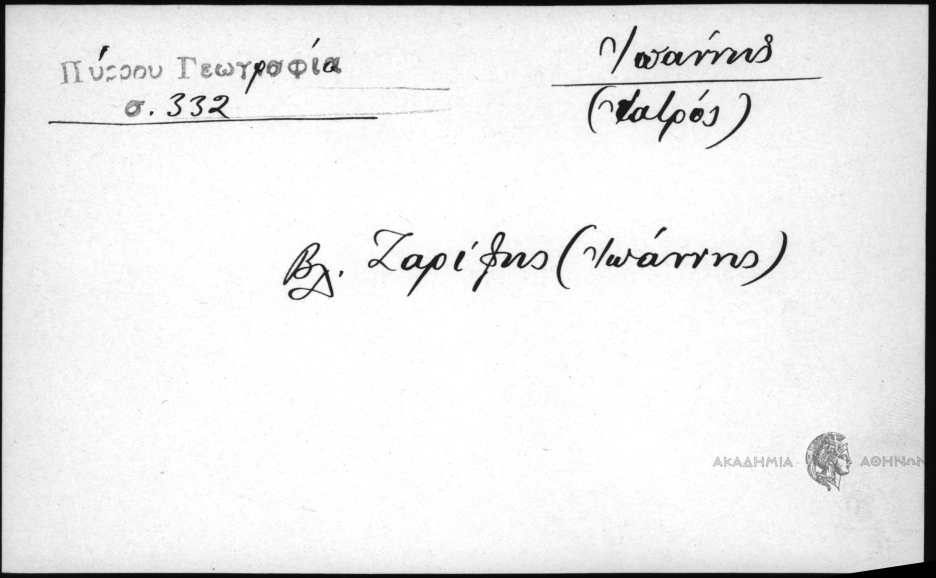 Πύρρου Γεωγραφία
σ. 332
Ἰωάννης
(Ἰατρός)
Βλ. Ζαρίφης (Ἰωάννης)
ΑΚΑΔΗΜΙΑ ΑΘΗΝΩΝ